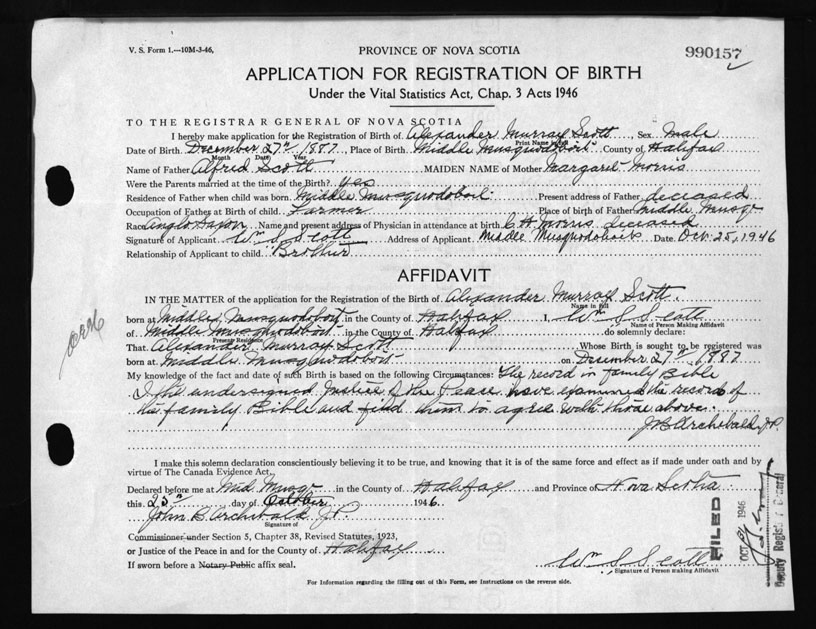 V. S. Form 1.—10M-3-46.
PROVINCE OF NOVA SCOTIA
990157
APPLICATION FOR REGISTRATION OF BIRTH
Under the Vital Statistics Act, Chap. 3 Acts 1946
TO THE REGISTRAR GENERAL OF NOVA SCOTIA
I hereby make application for the Registration of Birth of Alexander Murray Scott, Sex Male
Print Name in full
Date of Birth December 27th 1887, Place of Birth Middle Musquodoboit County of Halifax
Month Date Year
Name of Father Alfred Scott MAIDEN NAME of Mother Margaret Morris
Were the Parents married at the time of the Birth? yes
Residence of Father when child was born Middle Musquodoboit Present address of Father deceased
Occupation of Father at Birth of child Farmer Place of birth of Father Middle Musq.
Race Anglo Saxon Name and present address of Physician in attendance at birth C H Morris deceased
Signature of Applicant Wm S Scott Address of Applicant Middle Musquodoboit Date Oct 25, 1946
Relationship of Applicant to child Brother
AFFIDAVIT
IN THE MATTER of the application for the Registration of the Birth of Alexander Murray Scott
Name in full
born at Middle Musquodoboit in the County of Halifax I, Wm S Scott
Name of Person Making Affidavit
of Middle Musquodoboit in the County of Halifax do solemnly declare:
Present Residence
That Alexander Murray Scott Whose Birth is sought to be registered was
born at Middle Musquodoboit on December 27th 1887
My knowledge of the fact and date of such Birth is based on the following Circumstances: The record in family Bible
I the undersigned Justice of the Peace have examined the record of
the family Bible and find them to agree with those above.
J B Archibald J.P.
I make this solemn declaration conscientiously believing it to be true, and knowing that it is of the same force and effect as if made under oath and by
virtue of The Canada Evidence Act.
Declared before me at Mid Musq. in the County of Halifax and Province of Nova Scotia
this 25th day of October 1946
John B. Archibald J.P.
Signature of
Commissioner under Section 5, Chapter 38, Revised Statutes, 1923,
or Justice of the Peace in and for the County of Halifax
If sworn before a Notary Public affix seal.
Wm S Scott
Signature of Person making Affidavit
For Information regarding the filling out of this Form, see Instructions on the reverse side.
FILED
OCT 1946
Deputy Registrar General